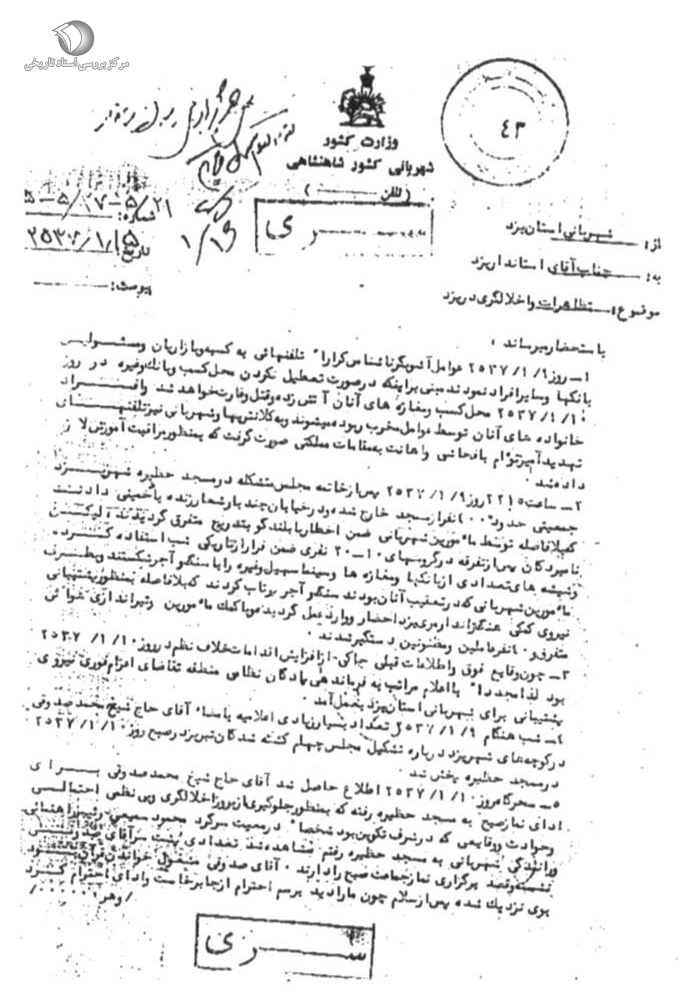 مرکز بررسی اسناد تاریخی
۴۳
وزارت کشور
شهربانی کشور شاهنشاهی
سری
شماره:
تاریخ ۲۵۳۷/۱/۱۵
پیوست:
از: شهربانی استان یزد
به: جناب آقای استاندار یزد
موضوع: تظاهرات و اخلالگری در یزد
باستحضار میرساند:
۱ـ روز ۲۵۳۷/۱/۹ عوامل آشوبگر ناشناس کرارا" تلفنهائی به کسبه و بازاریان و مسئولین
بانکها و سایر افراد نمودند مبنی براینکه درصورت تعطیل نکردن محل کسب و بانک وغیره در روز
۲۵۳۷/۱/۱۰ محل کسب و مغازه های آنان آتش زده و قتل و غارت خواهد شد و افراد
خانواده های آنان توسط عوامل مخرب ربوده میشوند و به کلانتریها و شهربانی نیز تلفنهای
تهدیدآمیز توام با فحاشی و اهانت به مقامات مملکتی صورت گرفت که بمنظور مراقبت آموزش لازم
داده شد.
۲ـ ساعت ۲۲۱۵ روز ۲۵۳۷/۱/۹ پس از خاتمه مجلس متشکله در مسجد حظیره شهر یزد
جمعیتی حدود نفر از مسجد خارج شده و در خیابان چند بار شعار زنده با خمینی دادند
که بلافاصله توسط مأمورین شهربانی ضمن اخطار با بلندگو بتدریج متفرق گردیدند، لیکن
نامبردگان پس از تفرقه در گروههای ۱۰ـ۲۰ نفری ضمن فرار از تاریکی شب استفاده کرده
و شیشه های تعدادی از بانکها و مغازه ها و سینما سهیل وغیره را با سنگ و آجر شکستند و بطرف
مأمورین شهربانی که در تعقیب آنان بودند سنگ و آجر پرتاب کردند که بلافاصله بمنظور پشتیبانی
نیروی کمکی هنگ ژاندارمری یزد احضار و وارد عمل گردید و با کمک مأمورین و تیراندازی هوائی
متفرق و نفر عاملین و مظنونین دستگیر شدند.
۳ـ چون وقایع فوق و اطلاعات قبلی حاکی از افزایش اقدامات خلاف نظم در روز ۲۵۳۷/۱/۱۰
بود لذا مجددا" با اعلام مراتب به فرماندهی پادگان نظامی منطقه تقاضای اعزام فوری نیروی
پشتیبانی برای شهربانی استان یزد بعمل آمد.
۴ـ شب هنگام ۲۵۳۷/۱/۹ تعداد بسیار زیادی اعلامیه با مضاء آقای حاج شیخ محمد صدوقی
در کوچه های شهر یزد درباره تشکیل مجلس چهلم کشته شدگان تبریز در صبح روز ۲۵۳۷/۱/۱۰
در مسجد حظیره پخش شد.
۵ـ سحرگاه روز ۲۵۳۷/۱/۱۰ اطلاع حاصل شد آقای حاج شیخ محمد صدوقی برای
ادای نماز صبح به مسجد حظیره رفته که بمنظور جلوگیری از بروز اخلالگری و بی نظمی احتمالی
و حوادث و وقایعی که در شرف تکوین بود شخصا" در معیت سرگرد محمود سمیعی رئیس راهنمائی
و رانندگی شهربانی به مسجد حظیره رفتم مشاهده شد تعدادی پشت سر آقای صدوقی
نشسته و قصد برگزاری نماز جماعت صبح را دارند. آقای صدوقی مشغول خواندن قرآن بود
بوی نزدیک شده پس از سلام چون ما را دید برسم احترام از جا برخاست و ادای احترام کرد
/ و هر
سری